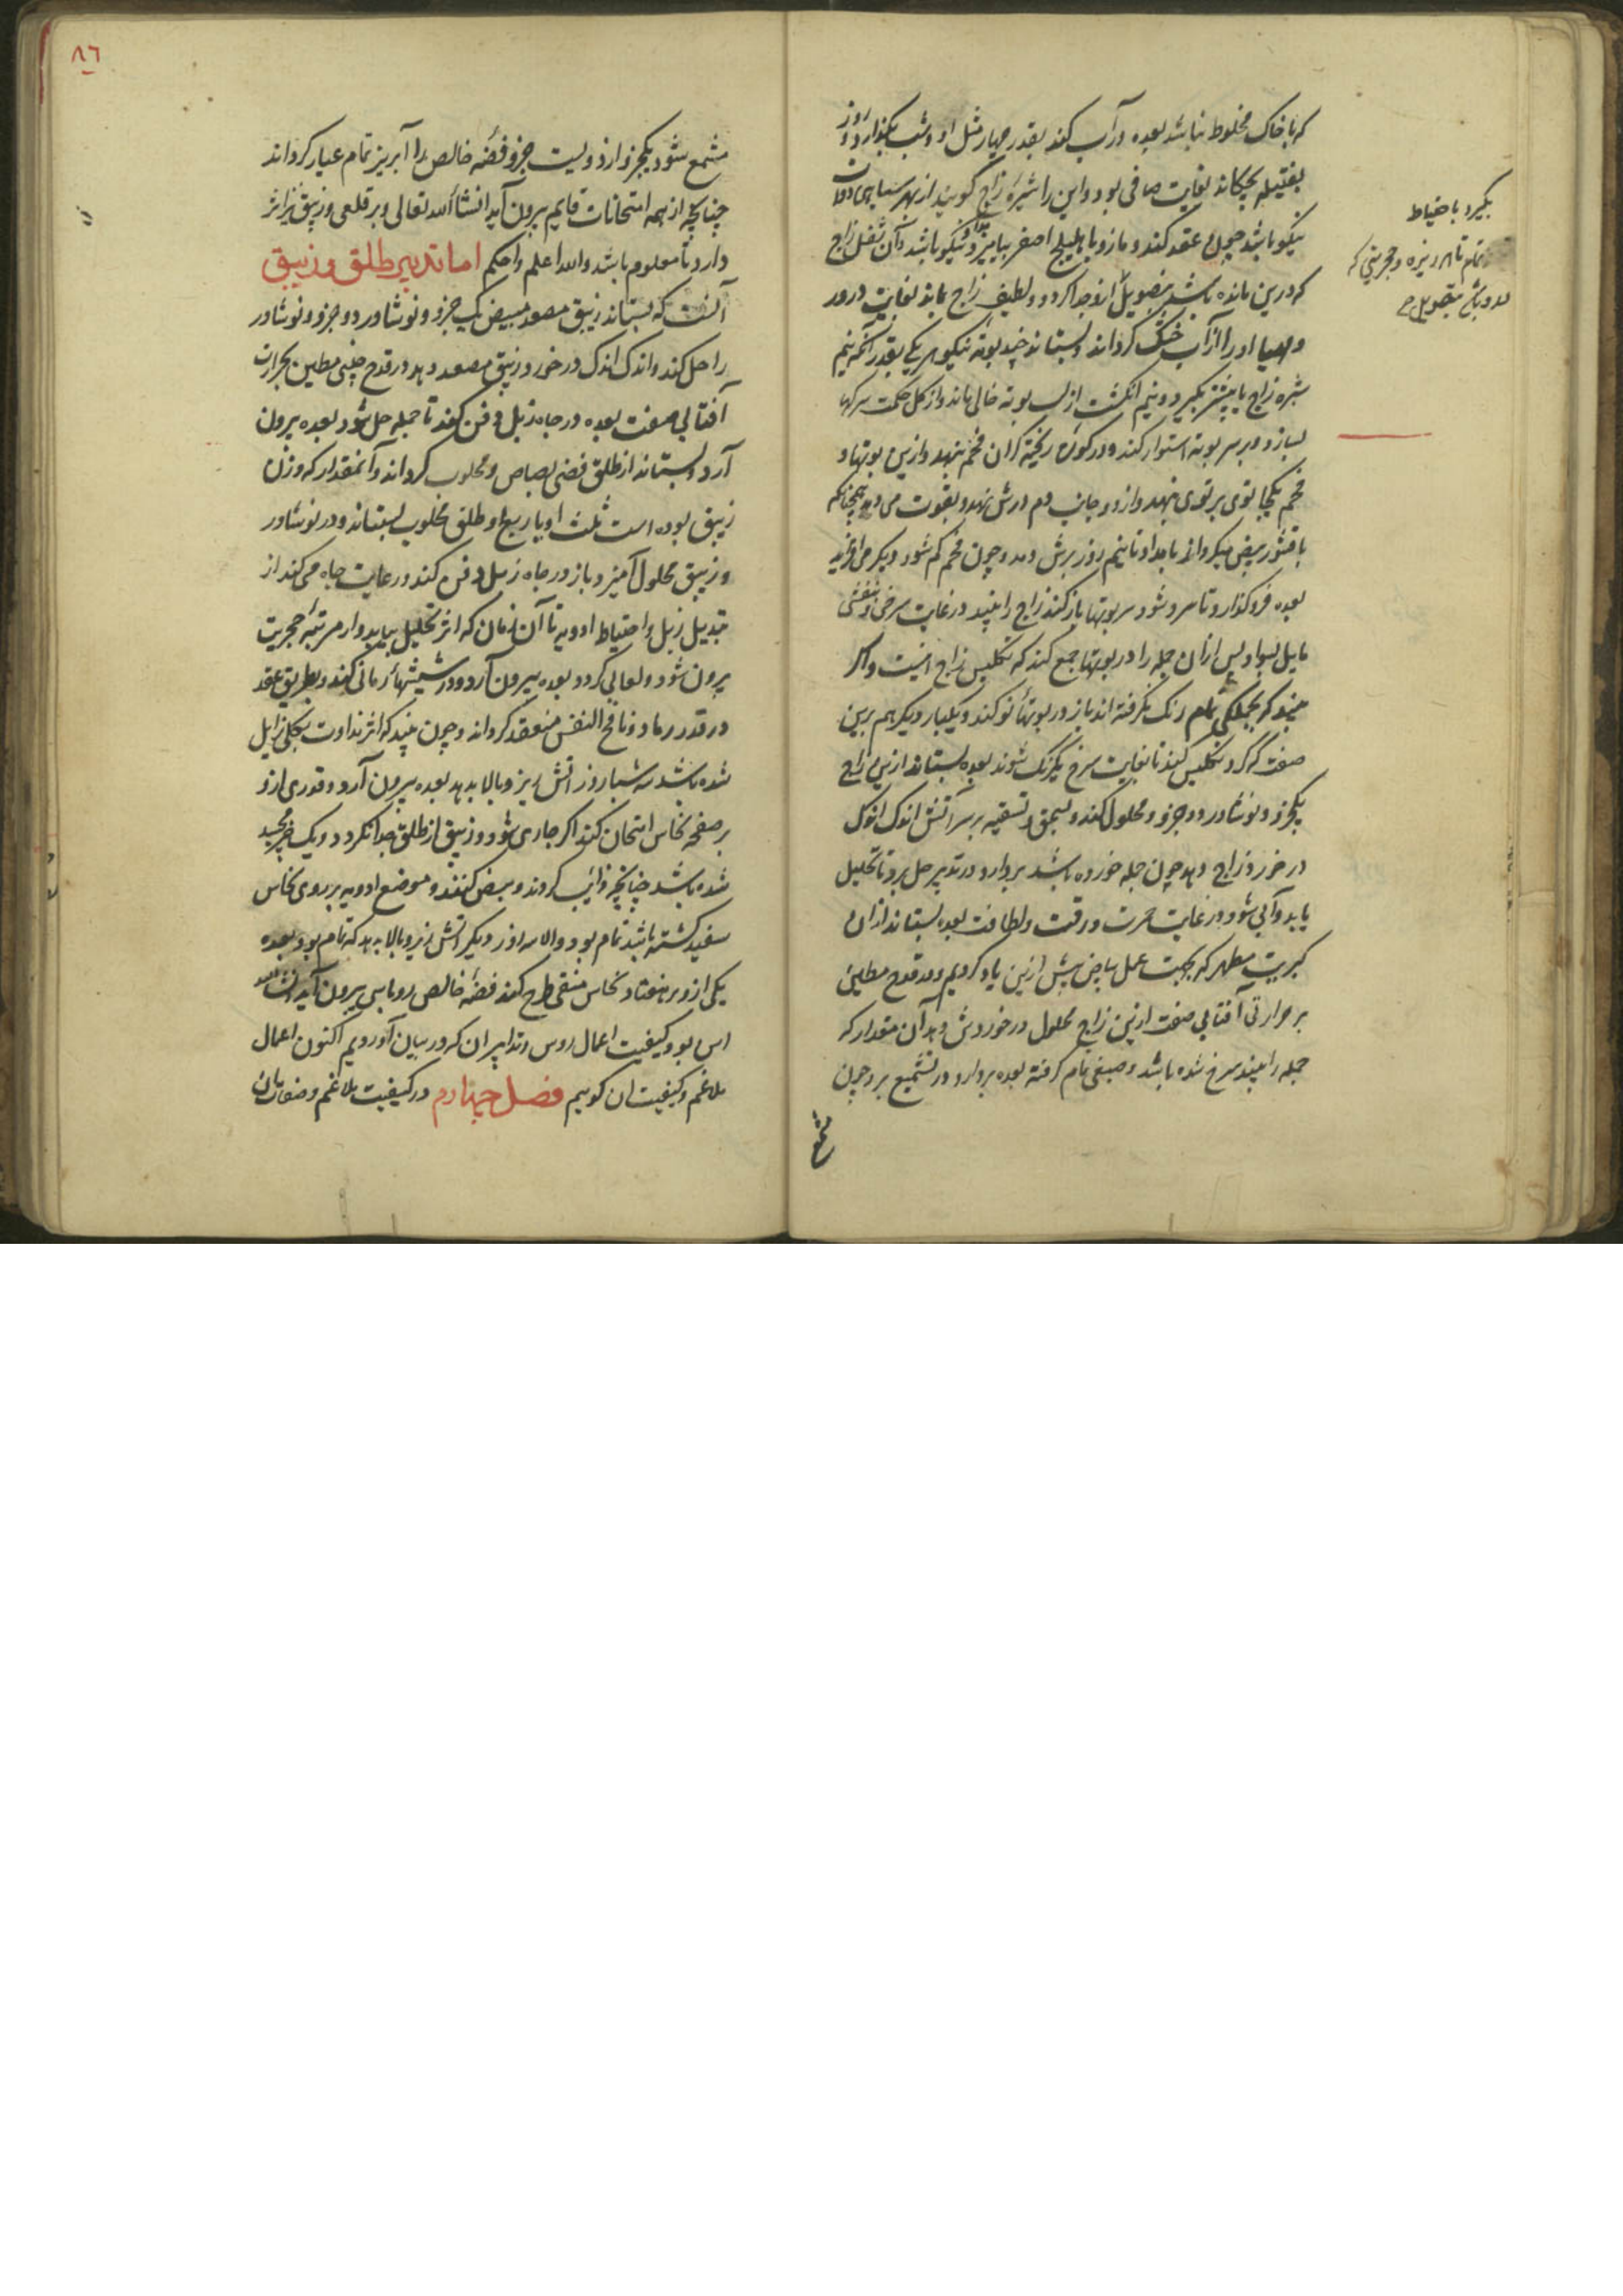 که با خاک مخلوط نباشد بعده در آب کند بقدر چهار مثل او و شب بگذارد و روز
بفتیله بچکاند بغایت صافی بود و این را شیره زاج گویند از بهر سیاهی دوات
نیکو باشد چون عقد کند و مازو با هلیلج اصفر بیامیزد نیکو باشد و آن ثفل زاج
که درین مانده باشد بتصویل ازو جدا کردد و لطیف زاج بماند بغایت
او را از آب خشک کرداند و بستاند چند بوته نیکو هر یکی بقدر آنکه نیم
شیره زاج یا بیشتر بگیرد و نیم انگشت از لب بوته خالی ماند و از کل حکمت سرکها
بسازد و بر سر بوته استوار کند و در کوره ریخته کران فحم بنهد و ازین بوتها و
فحم یکجا توی بر توی بنهد و از دو جانب دم درش نهد و بقوت می دمد همچنانکه
بعده فرو کذارد تا سرد شود سر بوتها باز کند زاج را بیند در غایت سرخی و بنفشی
مایل بسواد پس ازان جمله را در بوتها جمع کند که تکلیس زاج اینست و اکر
بیند که بجملکی تمام رنک نکرفته اند باز در بوتهای نو کند و یکبار دیکر هم برین
صفت که کرد تکلیس کند تا بغایت سرخ یکرنک شوند بعده بستاند ازین زاج
یکجزو و نوشادر دو جزو و محلول کند و بسحق و تسقیه بر سر آتش اندک اندک
در خورد زاج دهد چون جمله خورده باشد بردارد و در تدبیر حل برد تا تحلیل
یابد و آبی شود در غایت حمرت و رقت و لطافت بعده بستاند ازان
کبریت مطهر که بجهت عمل بیاض پیش ازین یاد کردیم و در قدح مطین
بر حرارتی آفتابی صفت ازین زاج محلول در خوردش دهد آن مقدار که
جمله را بیند سرخ شده باشد و صبغی تمام کرفته بعده بردارد و در تشمیع برد چون
مشمع
بگیرد باحتیاط
٨٦
مشمع شود یکجزو ازو دویست جزو فضه خالص را ابریز تمام عیار کرداند
چنانچه از همه امتحانات قایم بیرون آید انشاالله تعالی و بر قلعی و زیبق نیز اثر
دارد تا معلوم باشد والله اعلم و احکم اما تدبیر طلق و زیبق
آنست که بستاند زیبق مصعد مبیض یک جزو و نوشادر دو جزو و نوشادر
را حل کند و اندک اندک در خورد زیبق مصعد دهد در قدح چینی مطین بحرارت
آفتابی صفت بعده در چاه زبل دفن کند تا جمله حل شود بعده بیرون
آرد و بستاند از طلق فضی بصاص و محلوب کرداند و آنمقدار که وزن
زیبق بوده است ثلث او یا ربع او طلق محلوب بستاند و در نوشادر
و زیبق محلول آمیزد باز در چاه زبل دفن کند و رعایت چاه می کند از
تبدیل زبل و احتیاط ادویه تا آن زمان که اثر تحلیل بیابد و از مرتبه حجریت
بیرون شود و لعابی کردد بعده بیرون آرد و در شیشهای رمانی کند و بطریق عقد
در قدر رماد و نافخ النفس منعقد کرداند و چون بیند که اثر نداوت بکلی زایل
شده باشد سه شبانروز آتش زیر و بالا بدهد بعده بیرون آرد و قدری ازو
بر صفحه نحاس امتحان کند اکر جاری شود و زیبق از طلق جدا نکردد و یک
شده باشد چنانچه ذایب کردند و مبیض کنند و موضع ادویه بر روی نحاس
سفید کشته باشد تمام بود والا سه روز دیکر آتش زیر و بالا بدهد که تمام بود بعده
یکی ازو بر هفتاد نحاس منقی طرح کند فضه خالص روباس بیرون آید انشاالله
این بود کیفیت اعمال روس و تدابیر ان که در بیان آوردیم اکنون اعمال
بلاغم و کیفیت ان کوییم فصل چهارم در کیفیت بلاغم و صفات ان